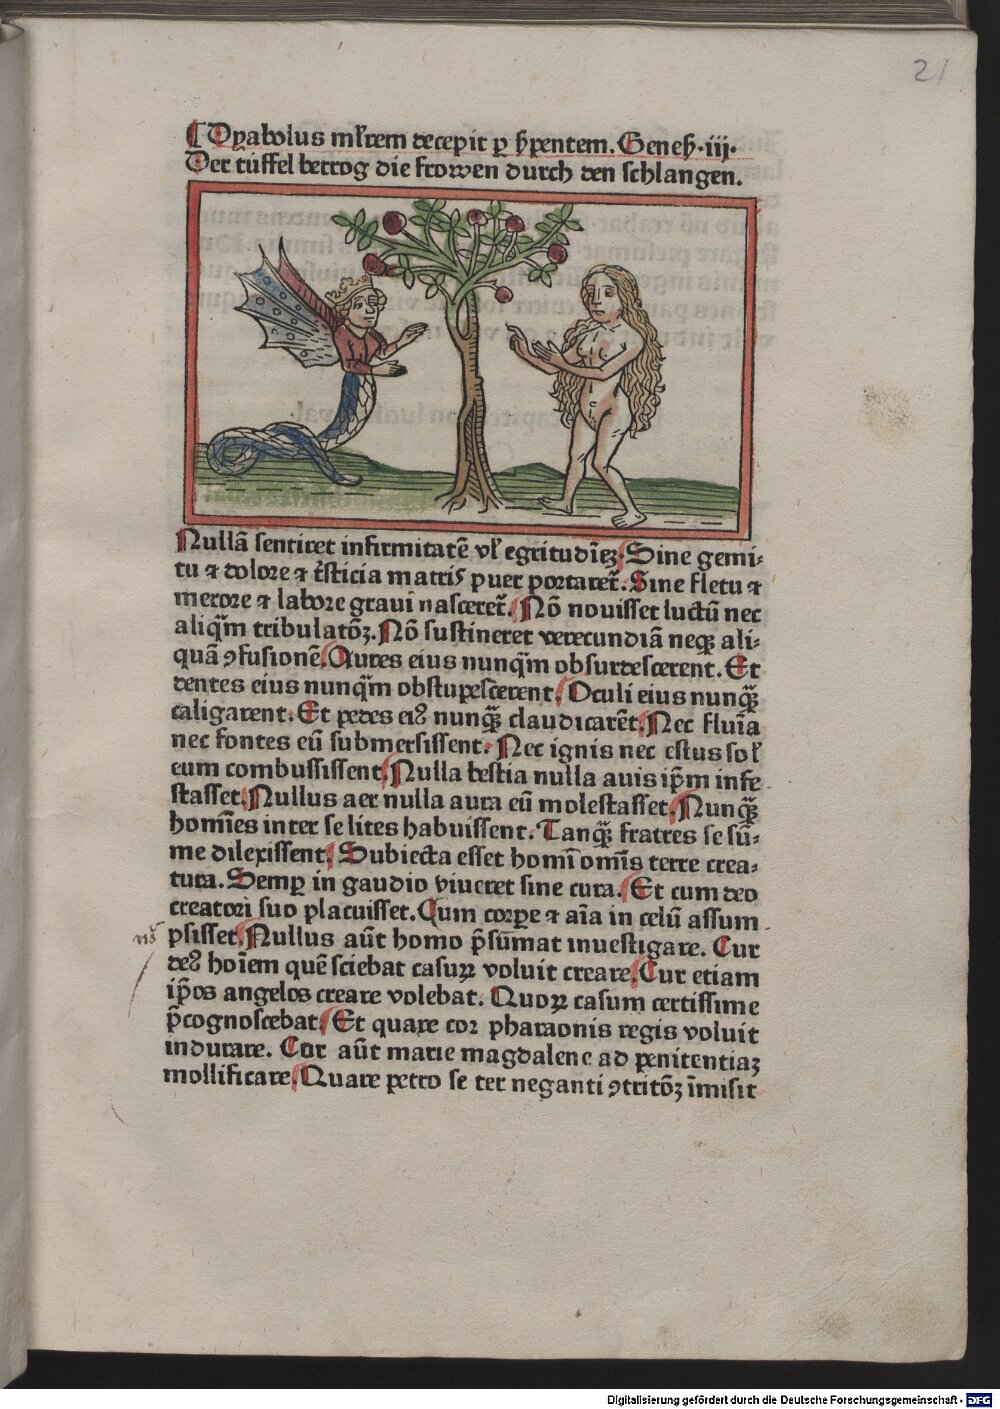 21
¶ Dyabolus ml̓rem decepit ꝑ ẜpentem. Geneẜ·iij·
Der tüffel betrog die frowen durch den schlangen.
Nullā sentiret infirmitatē vl̓ egritudīeꝫ. Sine gemi⸗
tu ⁊ dolore ⁊ tͥsticia matris puer portaret̄. Sine fletu ⁊
merore ⁊ labore graui nasceret̄. Nō nouisset luctū nec
aliqͣm tribulatōꝫ. Nō sustineret verecundiā neqꝫ ali⸗
quā ꝯfusionē. Aures eius nunqͣm obsurdescerent. Et
dentes eius nunqͣm obstupescerent. Oculi eius nunqͣꝫ
caligarent. Et pedes eiꝰ nunqͣꝫ claudicarēt. Nec fluīa
nec fontes eū submersissent. Nec ignis nec estus sol̓
eum combussissent. Nulla bestia nulla auis ip̄m infe
stasset. Nullus aer nulla aura eū molestasset. Nunqͣꝫ
homīes inter se lites habuissent. Tanqͣꝫ fratres se sū⸗
me dilexissent. Subiecta esset homī omīs terre crea⸗
tura. Semꝑ in gaudio viueret sine cura. Et cum deo
creatori suo placuisset. Cum corꝑe ⁊ aīa in celū assum
psisset. Nullus aūt homo p̄sūmat inuestigare. Cur
deꝰ hoīem quē sciebat casurꝝ voluit creare. Cur etiam
ip̄os angelos creare volebat. Quoꝝ casum certissime
p̄cognoscebat. Et quare cor pharaonis regis voluit
indurare. Cor aūt marie magdalene ad penitentiaꝫ
mollificare. Quare petro se ter neganti ꝯtritōꝫ īmisit
Digitalisierung gefördert durch die Deutsche Forschungsgemeinschaft - DFG